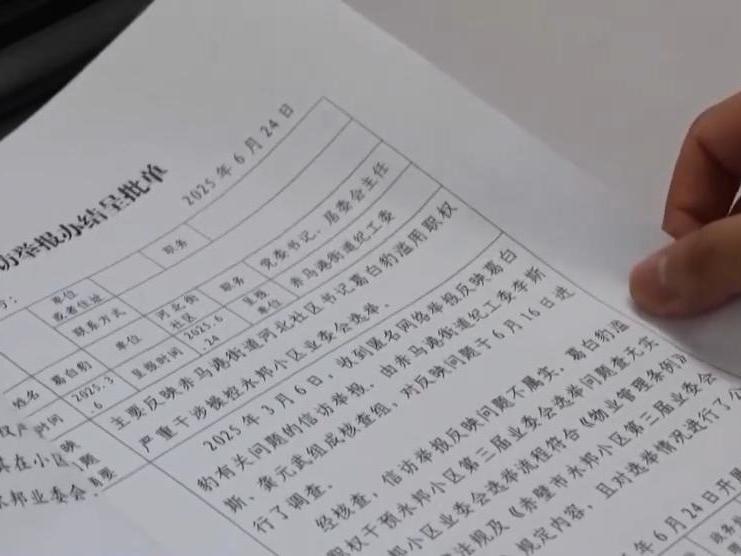 访举报办结呈批单
2025年6月24日
号:
单位
或者住址
职务
联系方式
姓名
葛白豹
单位
河北街
社区
职务
党委书记、居委会主任
时间
2025.3
.6
呈报时间
2025.6
.24
呈报
单位
赤马港街道纪工委
主要反映赤马港街道河北社区书记葛白豹滥用职权
严重干涉操控永邦小区业委会选举。
2025年3月6日,收到匿名网络举报反映葛白
豹有关问题的信访举报。由赤马港街道纪工委李斯
斯、龚元武组成核查组,对反映问题于6月16日进
行了调查。
经核查,信访举报反映问题不属实。葛白豹滥
职权干预永邦小区第三届业委会选举问题查无实
邦小区业委会选举流程符合《物业管理条例》
法规及《赤壁市永邦小区第三届业委会
规定内容,且对选举情况进行了公
年6月24日开
在小区
邦业委会